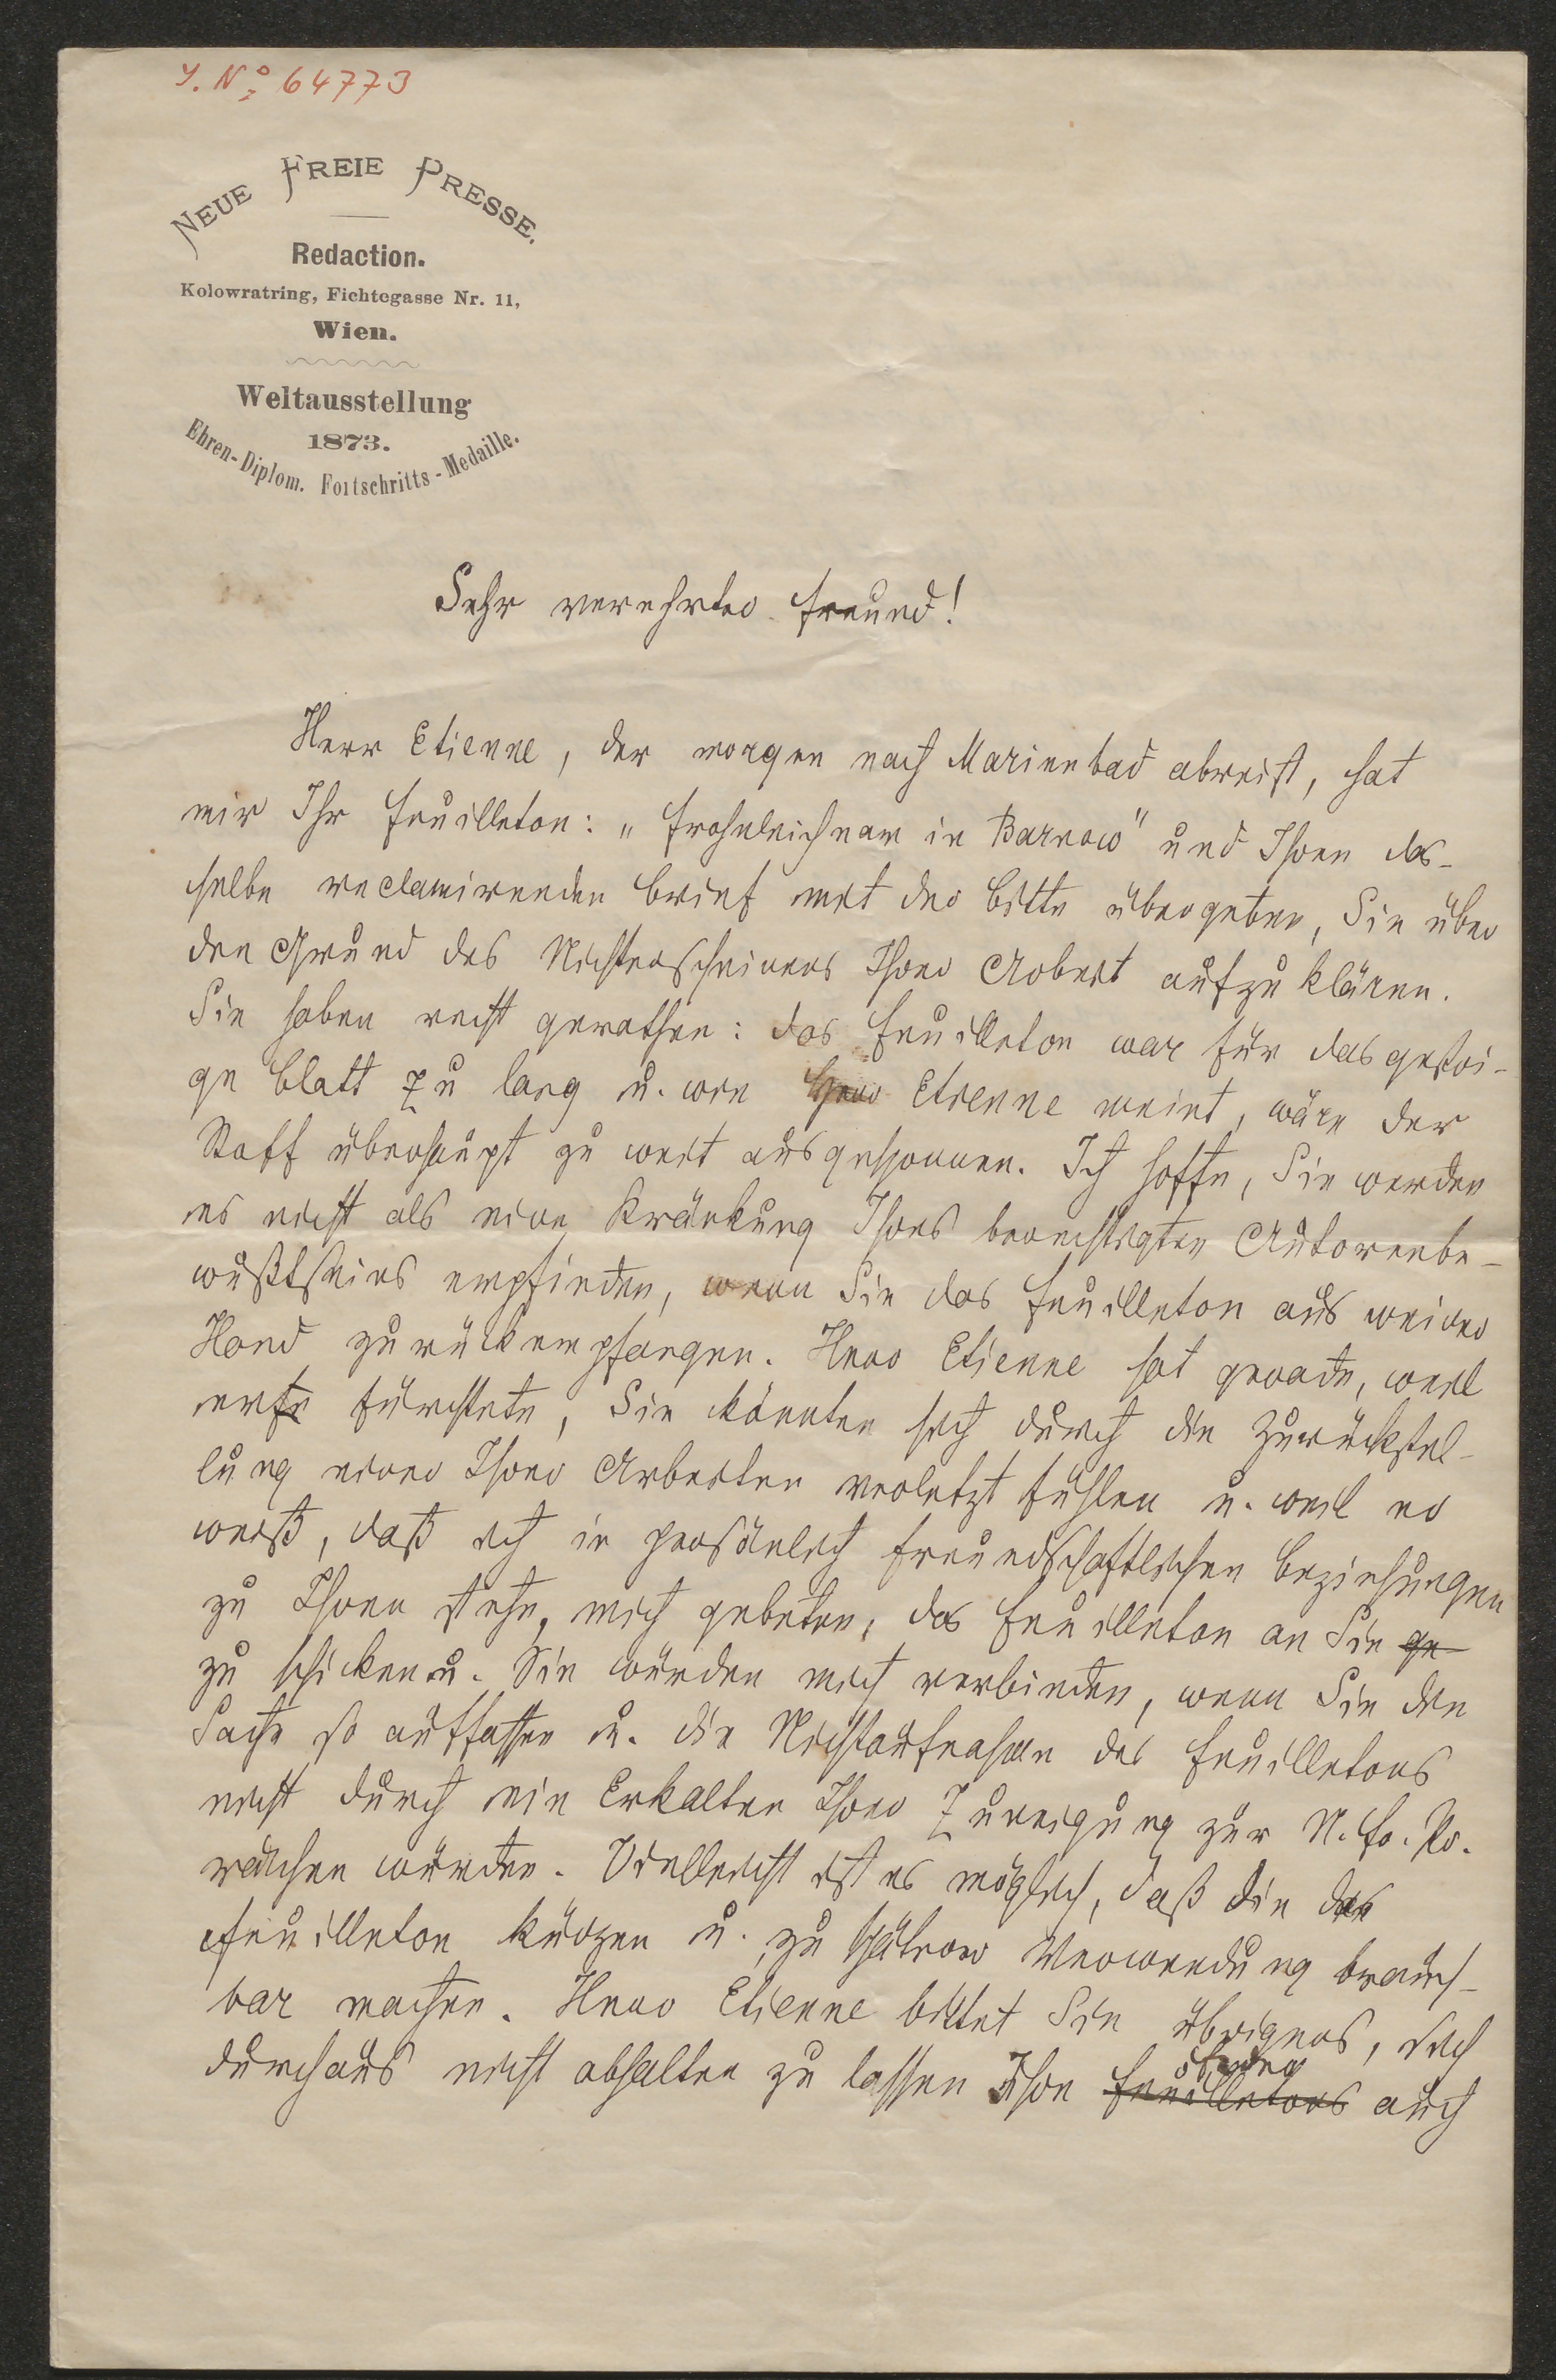 J. No: 64773
NEUE FREIE PRESSE.
Redaction.
Kolowratring, Fichtegasse Nr. 11,
Wien.
Weltausstellung
1873.
Ehren-Diplom. Fortschritts-Medaille.
Sehr verehrter Freund!
Herr Etienne, der morgen nach Marienbad abreist, hat
mir Ihr Feuilleton: „Frohnleichnam in Barnow" und Ihren das-
selbe reclamirenden Brief mit der Bitte übergeben, Sie über
den Grund des Nichterscheinens Ihrer Arbeit aufzuklären.
Sie haben recht gerathen: das Feuilleton war für das gestri-
ge Blatt zu lang u. wie Herr Etienne meint, wäre der
Stoff überhaupt zu weit ausgesponnen. Ich hoffe, Sie werden
es nicht als eine Kränkung Ihres berechtigten Autorenbe-
wußtseins empfinden, wenn Sie das Feuilleton aus meiner
Hand zurückempfangen. Herr Etienne hat gerade, weil
er fürchtete, Sie könnten sich durch die Zurückstel-
lung einer Ihrer Arbeiten verletzt fühlen u. weil er
weiß, daß ich in persönlich freundschaftlichen Beziehungen
zu Ihnen stehe, mich gebeten, das Feuilleton an Sie ge
zu schicken u. Sie würden mich verbinden, wenn Sie die
Sache so auffassen u. die Nichtaufnahme des Feuilletons
nicht durch ein Erkalten Ihrer Zuneigung zur N. Fr. Pr.
rächen würden. Vielleicht ist es möglich, daß Sie das
Feuilleton kürzen u. zu späterer Verwendung brauch-
bar machen. Herr Etienne bittet Sie übrigens, sich
durchaus nicht abhalten zu lassen Ihre Feuilletons auch